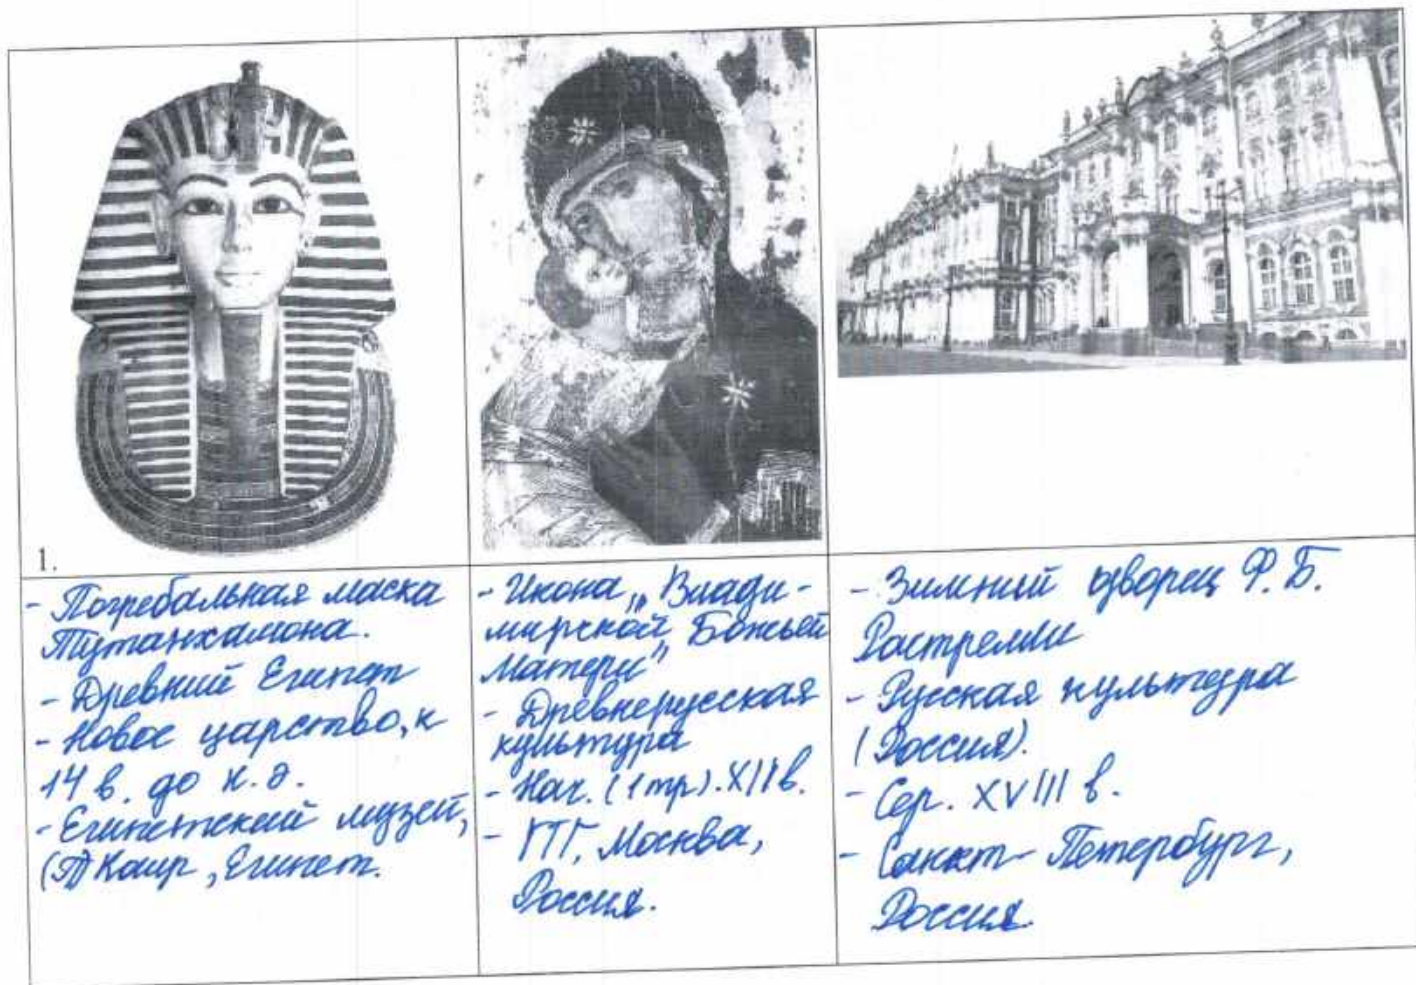 1.
- Погребальная маска
Тутанхамона.
- Древний Египет
- Новое царство, к
14 в. до н.э.
- Египетский музей,
Каир, Египет.
- Икона „Влади-
мирской Божьей
Матери"
- Древнерусская
культура
- Нач. (1 тр). XII в.
- ГТГ, Москва,
Россия.
- Зимний дворец Ф.Б.
Растрелли
- Русская культура
(Россия).
- Сер. XVIII в.
- Санкт-Петербург,
Россия.